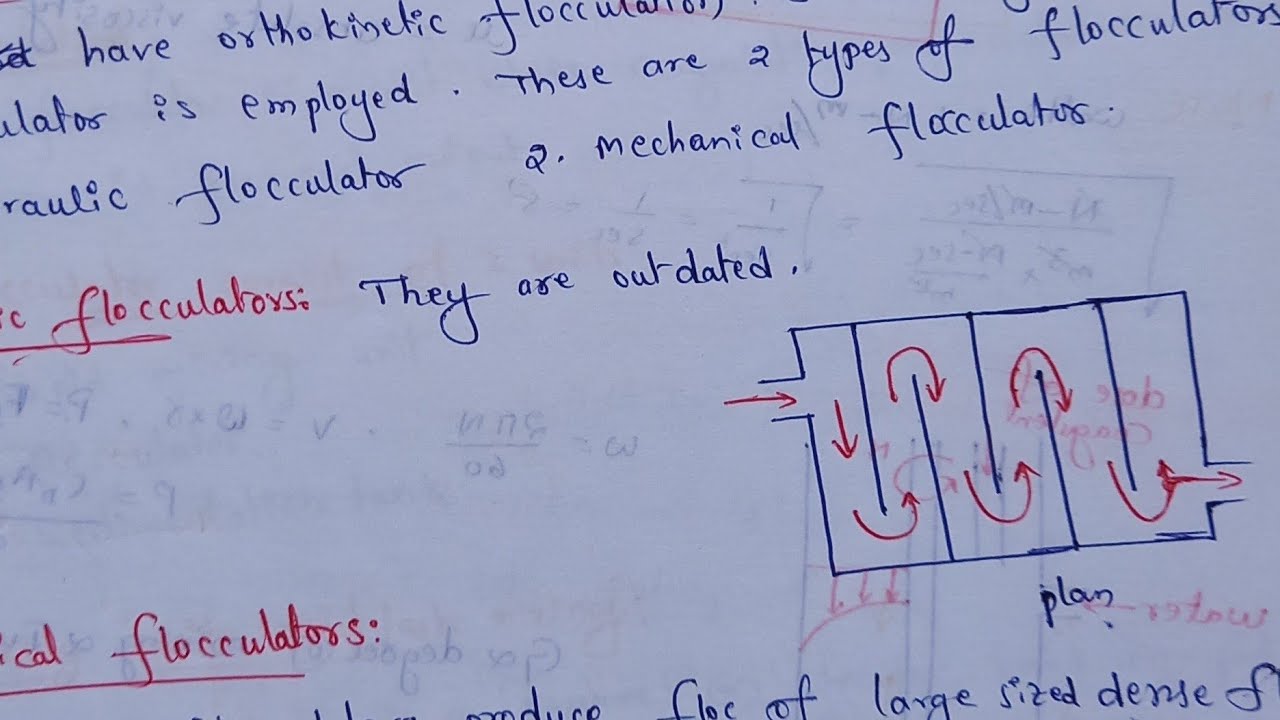 have orthokinetic flocculator,
ulator is employed. These are 2 types of flocculators
raulic flocculator 2. mechanical flocculator.
ic flocculators: They are outdated.
plan
ical flocculators:
produce floc of large sized dense